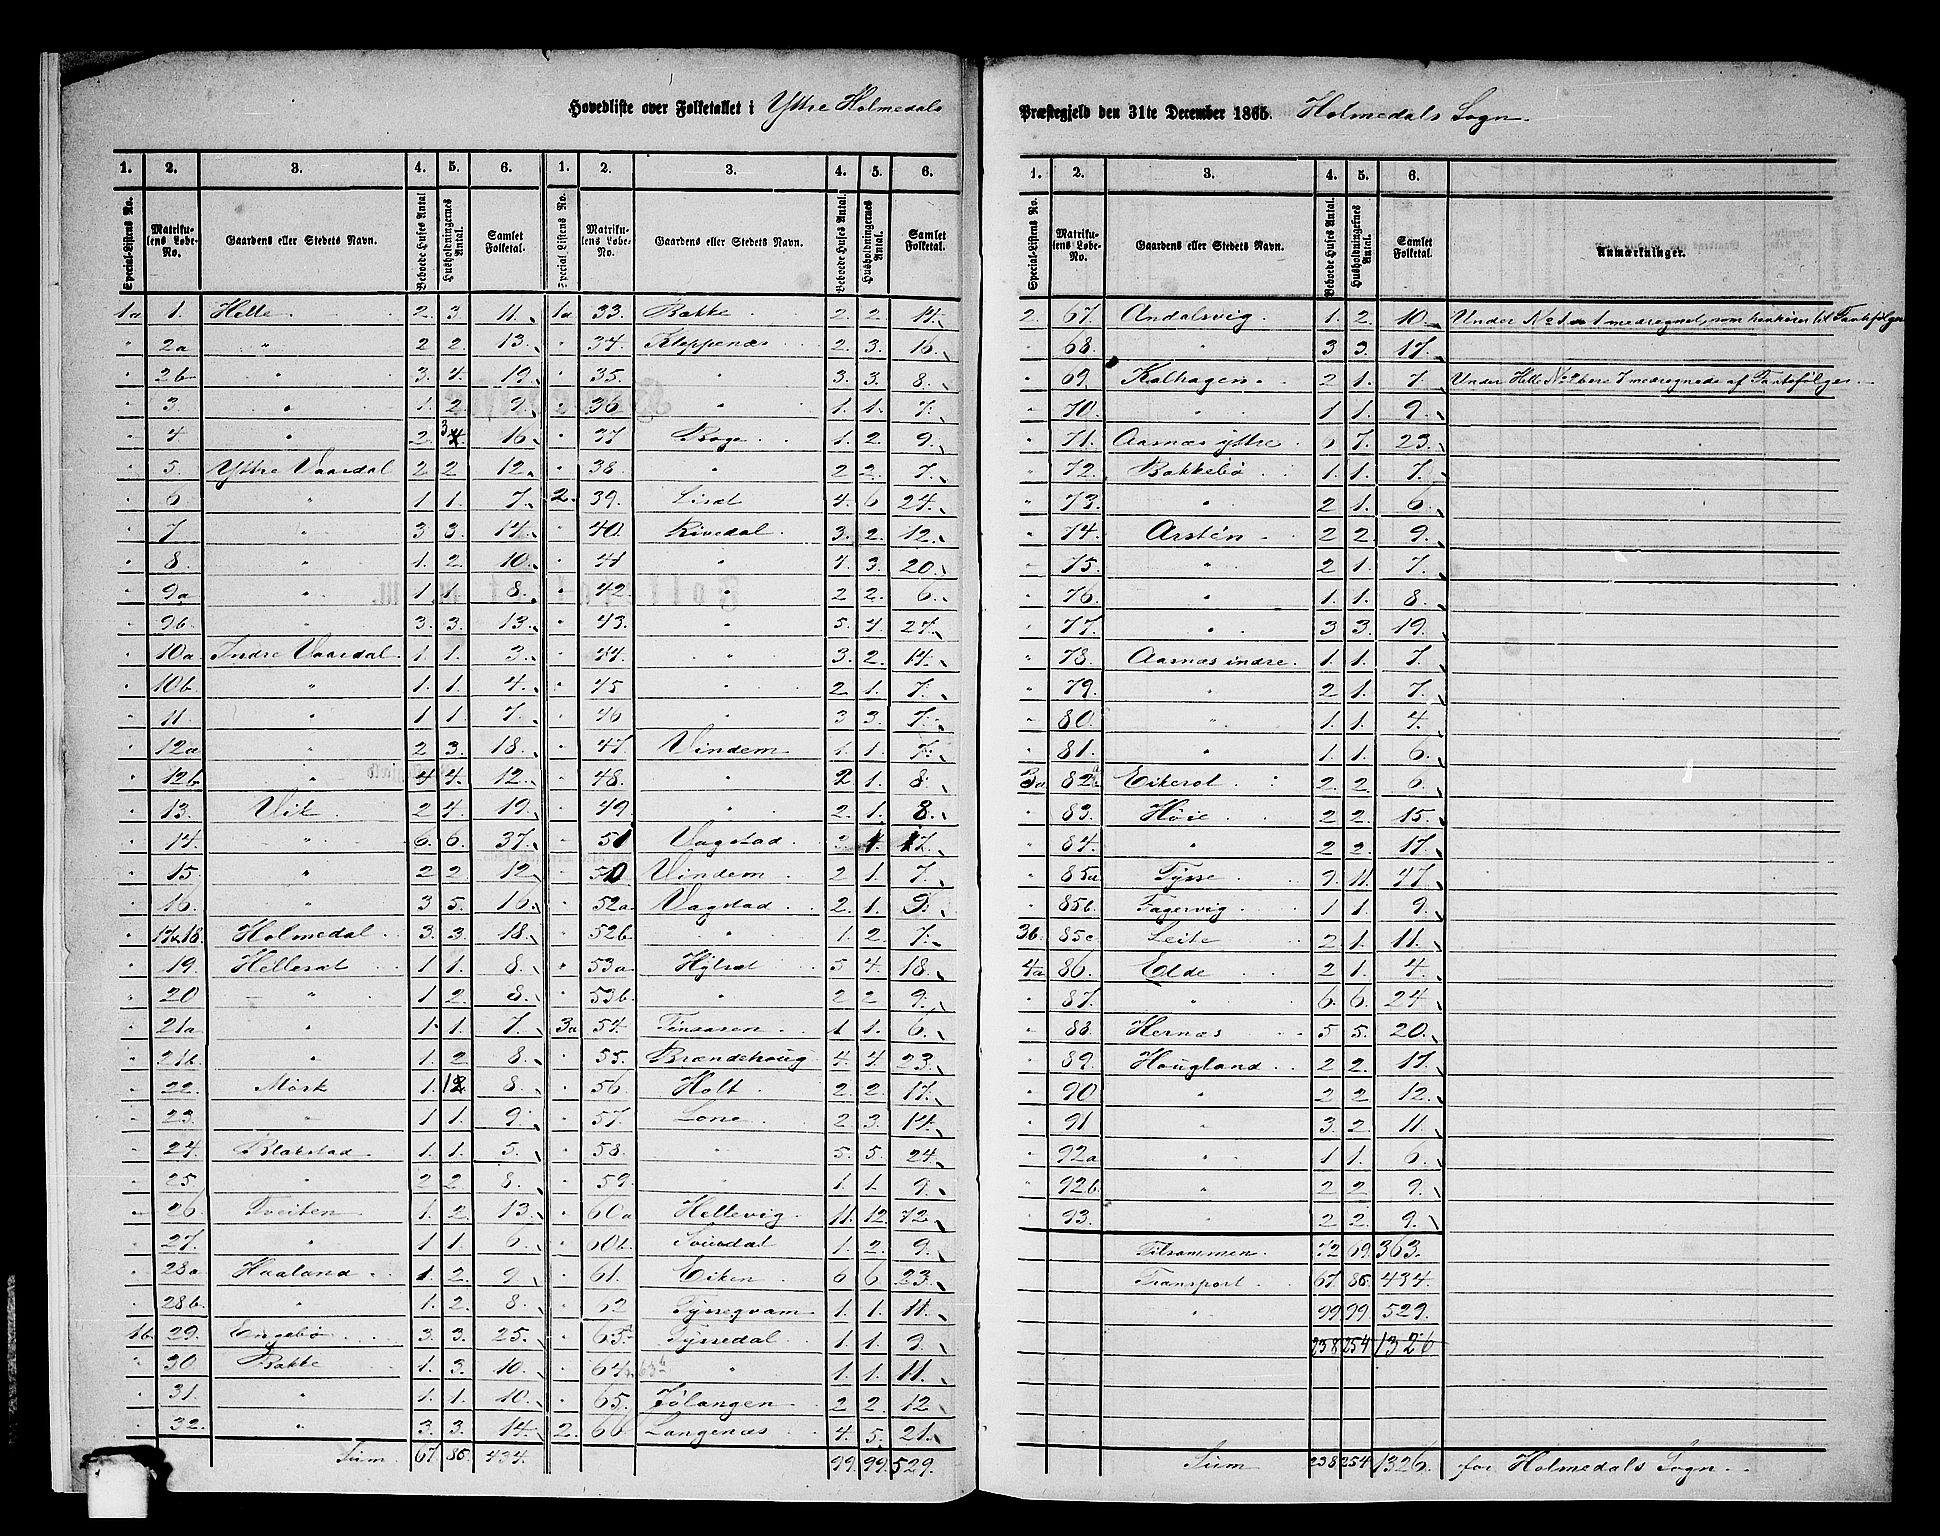 Hovedliste over Folketallet i Yttre Holmedals
Præstegjeld den 31te December 1865. Holmedals Sogn.
1. 2. 3. 4. 5. 6. 1. 2. 3. 4. 5. 6.
Special-Listens No. Matrikulens Løbe-No. Gaardens eller Stedets Navn. Beboede Huses Antal Husholdningernes Antal. Samlet Folketal. Special-Listens No. Matrikulens Løbe-No. Gaardens eller Stedets Navn. Beboede Huses Antal. Husholdningernes Antal. Samlet Folketal.
1a 1. Helle 2. 3 11. 1a 33. Bakke 2. 2. 14.
" 2a " 2 2. 13. " 34. Kleppenæs 2. 3. 16.
" 2b " 3. 4. 19. " 35. " 3. 3. 8.
" 3 " 1. 2 9. " 36 " 1. 1. 7.
" 4 " 2 3 16. " 37 Boge 1. 2. 9.
" 5. Yttre Vaardal 2 2 12. " 38. " 2 2. 7.
" 6 " 1 1. 7. 2. 39. Lisæt 4. 6 24.
" 7 " 3 3. 14. " 40. Rivedal 3. 2. 12.
" 8. " 1. 2 10. " 41 " 4. 3. 20.
" 9a " 1 1 8. " 42. " 2 2. 6.
" 9b. " 3. 3. 13. " 43. " 5. 4. 27.
" 10a Indre Vaardal 1. 1. 3. " 44. " 3. 2. 14.
" 10b. " 1. 1. 4. " 45 " 2 1. 7.
" 11. " 1 1. 7. " 46 " 3 3. 7.
" 12a " 2 3. 18. " 47. Vindem 1. 1. 7.
" 12b " 4 4. 12. " 48. " 2 1. 8.
" 13. Vik 2 4. 19. " 49 " 2. 1. 8.
" 14. " 6. 6. 37. " 51 Vagstad 1 17.
" 15 " 2 2. 12. " 50 Vindem 2 1. 7.
" 16. " 3 5. 16. " 52a Vagstad 2. 1. 9.
" 17&18. Holmedal 3. 3. 18. " 52b " 1. 2. 7.
" 19. Hellesæt 1 1. 8. " 53a Hylsæt 5 4. 18.
" 20 " 1 2. 8. " 53b. " 2 2 9.
" 21a " 1. 1. 7. 3a 54. Tinsaren 1 1. 6.
" 21b. " 1. 2 8. " 55. Brændehoug 4. 4. 23.
" 22. Mørk 1. 8. " 56. Holt 2. 2. 17.
" 23. " 1 1. 9. " 57. Lone 2 3. 14.
" 24. Blakstad 1. 1. 5. " 58. " 5. 5. 24.
" 25 " 2 2 8. " 59. " 1 1. 9.
" 26 Tveiten 1. 2. 13. " 60a Hellevig 11. 12. 72
" 27. " 1 1. 6. " 60b. Sourdal 1. 2 9.
" 28a Haaland 1. 2. 9 " 61. Eiken 6 6 23.
" 28b. " 1. 2. 8. " 62 Tyssegvam 1. 1. 11.
1b 29. Engebø 3. 3. 25. " 63. Tyssedal 1. 1. 9.
" 30 Bakke 1. 3. 10. " 64. 63b " 1 1. 11.
" 31. " 1 1. 10. " 65. Jølangen 2 2. 12
" 32. " 3. 3. 14. 2. 66. Langenæs 4. 5. 21.
Sum 67. 86. 434. 99. 99. 529.
1. 2. 3. 4. 5. 6.
Special-Listens No. Matrikulens Løbe-No. Gaardens eller Stedets Navn. Beboede Huses Antal. Husholdningernes Antal. Samlet Folketal. Anmærkninger.
2. 67. Andalsvig 1. 2. 10. Under No 1a 1 medregnet, som henhører til Tantfølger
" 68. " 3 3. 17.
" 69. Kalhagen 2 1. 7. Under Helle No 2b ere 7 medregnede af Tantefølger
" 70. " 1 1. 9.
" 71. Aarnæs yttre 6 7. 23.
" 72. Bakkebø 1 1. 7.
" 73. " 2 1. 6.
" 74. Arstén 2 2. 9.
" 75. " 2 1. 7.
" 76. " 1 1. 8.
" 77. " 3 3. 19.
" 78. Aarnæs indre 1. 1. 7.
" 79. " 2 1. 7.
" 80. " 1 1. 4.
" 81. " 1 1. 6.
3a 82a Eikerol 2. 2. 6.
" 83. Høie 2 2. 15.
" 84. " 2 2. 17.
" 85a Tysse 9. 11. 47.
" 85b. Fagervig 1 1. 9.
3b. 85c Leite 2 1. 11.
4a 86. Elde 2 1. 4.
" 87. " 6. 6. 24
" 88. Hernæs 5 5. 20.
" 89. Hougland 2 2. 17.
" 90. " 2 2 12.
" 91 " 3. 2. 11.
" 92a " 1 1. 6.
" 92b. " 2 2 9.
" 93. " 2 2. 9.
Tilsammen 72 69. 363.
Transport 67. 86. 434.
" 99 99. 529.
238 254 1326
Sum 238 254. 1326. for Holmedals Sogn.